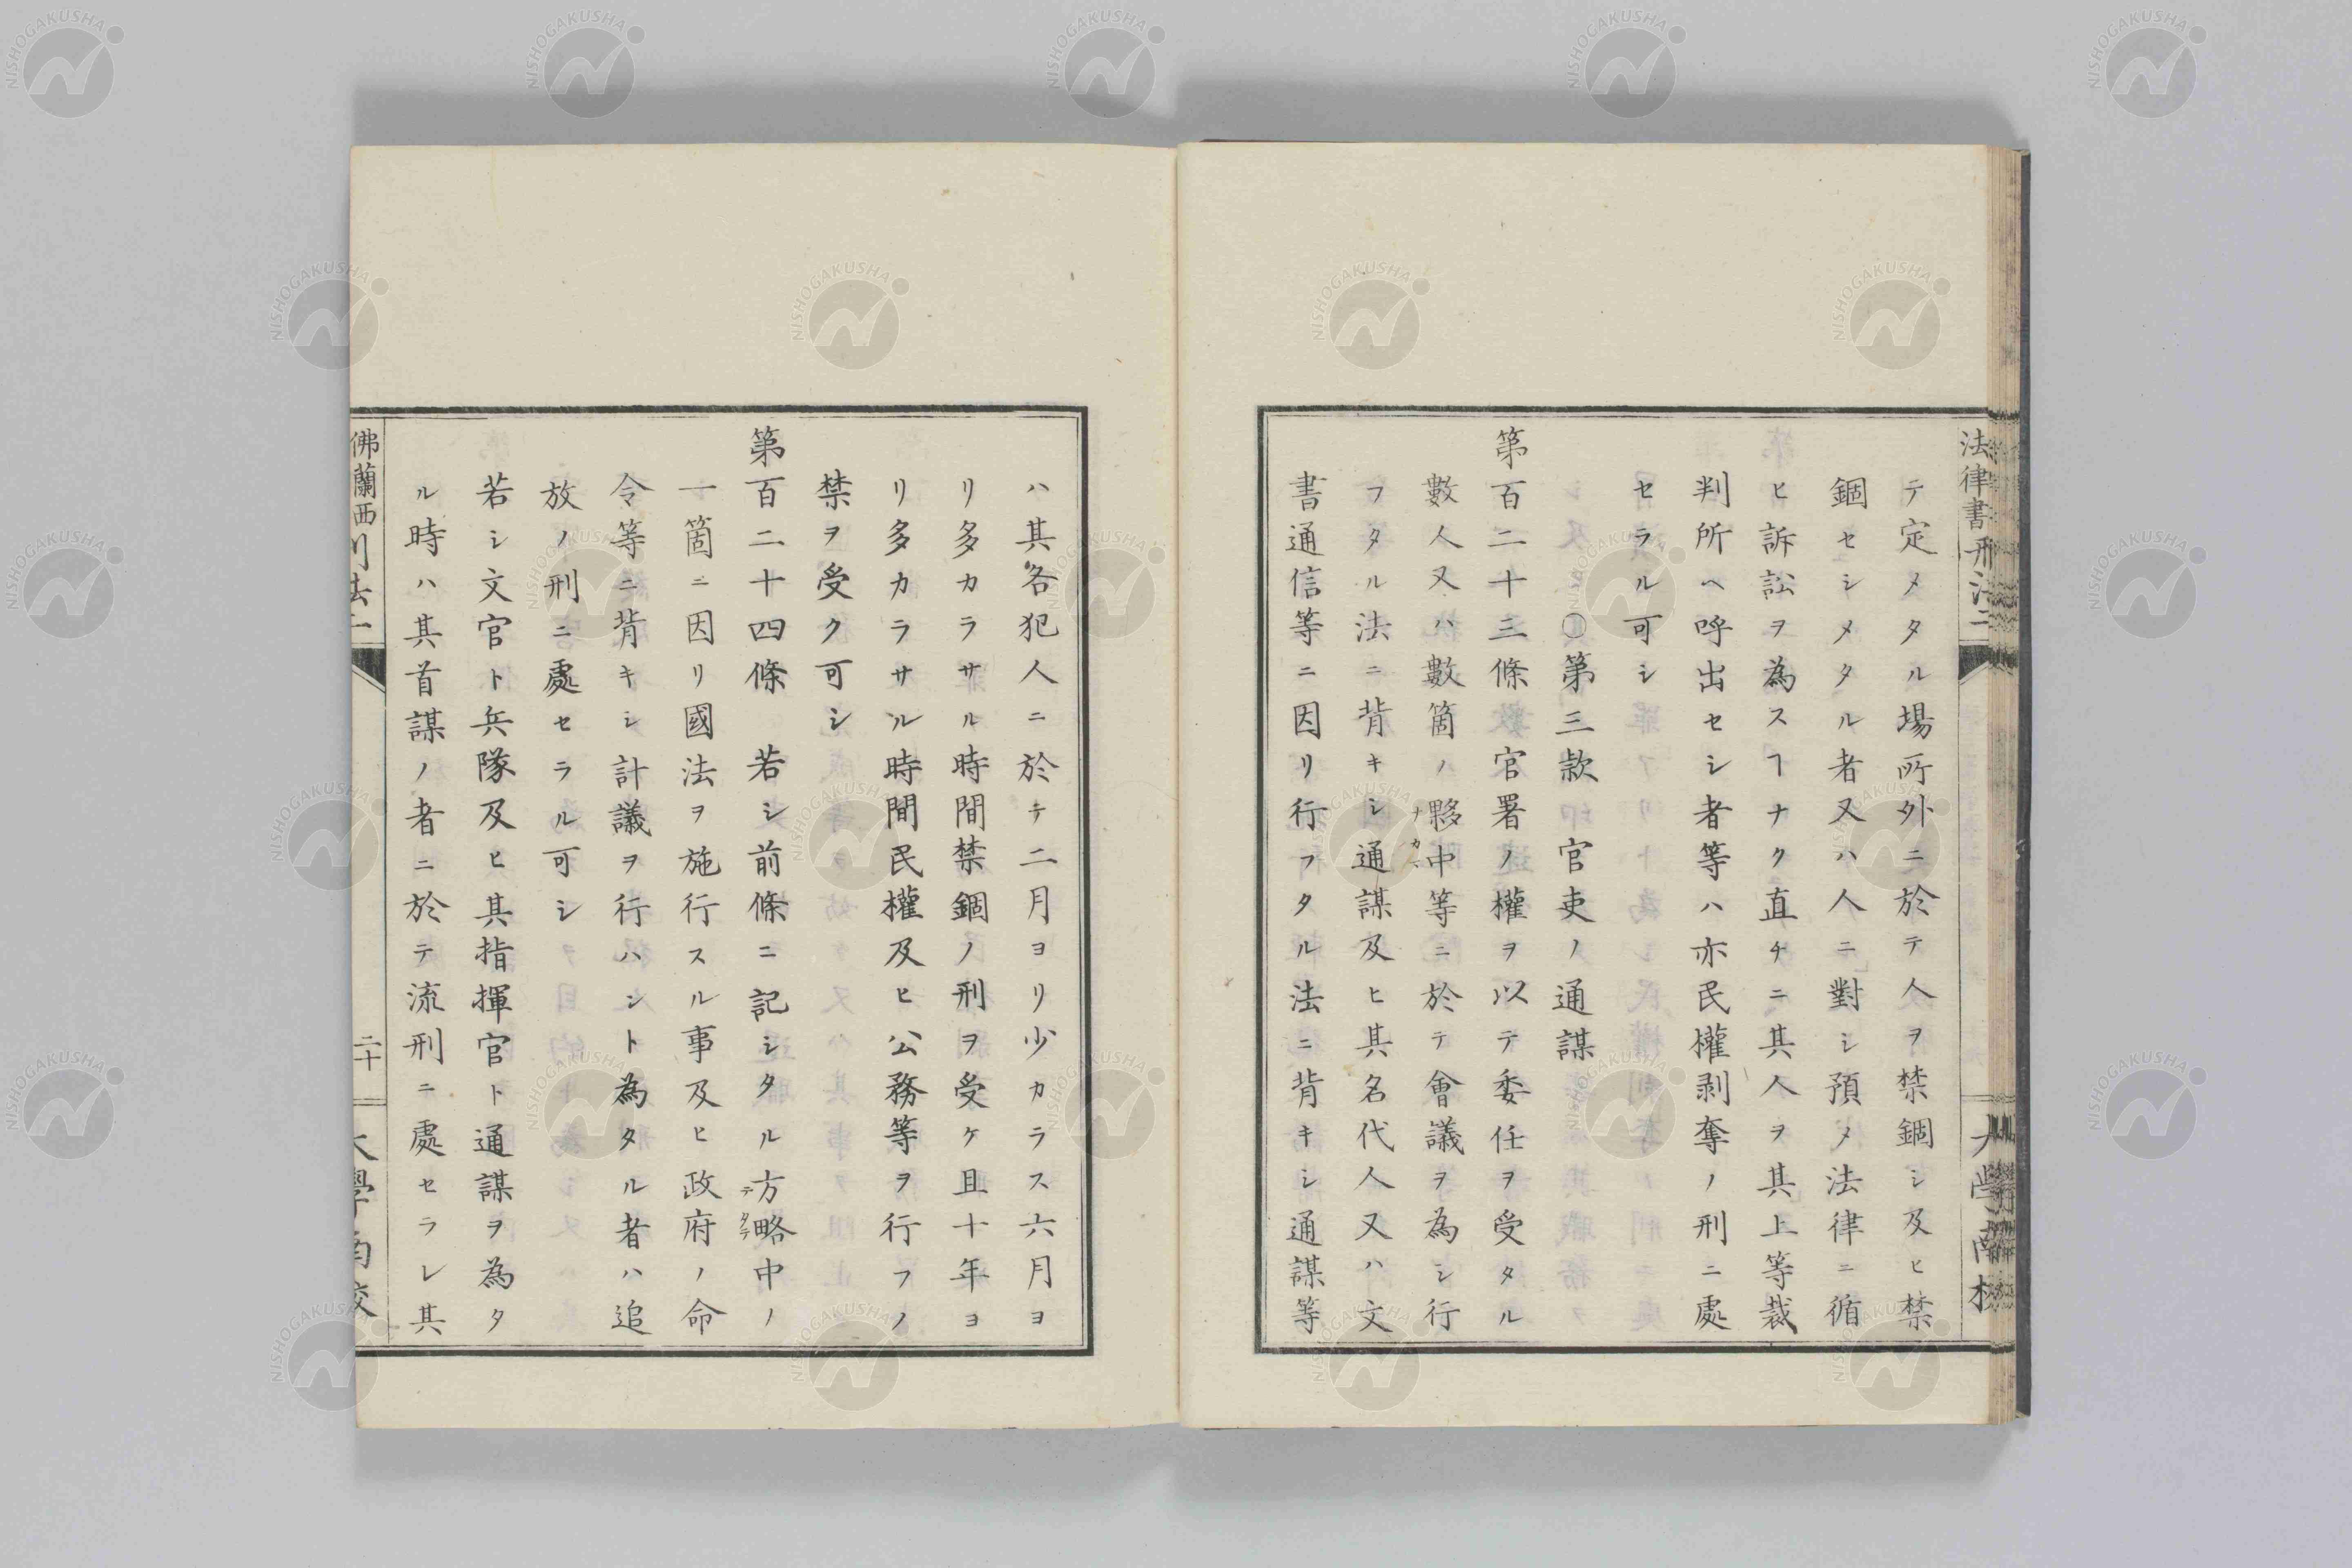 法律書刑法二
テ定メタル場所外ニ於テ人ヲ禁錮シ及ヒ禁
錮セシメタル者又ハ人ニ對シ預メ法律ニ循
ヒ訴訟ヲ為スヿナク直チニ其人ヲ其上等裁
判所ヘ呼出セシ者等ハ亦民權剥奪ノ刑ニ處
セラル可シ
〇第三款 官吏ノ通謀
第百二十三條 官署ノ權ヲ以テ委任ヲ受タル
數人又ハ數箇ノ夥中等ニ於テ會議ヲ為シ行
ナカマ
フタル法ニ背キシ通謀及ヒ其名代人又ハ文
書通信等ニ因リ行フタル法ニ背キシ通謀等
大學南校
ハ其各犯人ニ於テ二月ヨリ少カラス六月ヨ
リ多カラサル時間禁錮ノ刑ヲ受ケ且十年ヨ
リ多カラサル時間民權及ヒ公務等ヲ行フノ
禁ヲ受ク可シ
第百二十四條 若シ前條ニ記シタル方略中ノ
テタテ
一箇ニ因リ國法ヲ施行スル事及ヒ政府ノ命
令等ニ背キシ計議ヲ行ハント為タル者ハ追
放ノ刑ニ處セラル可シ
若シ文官ト兵隊及ヒ其指揮官ト通謀ヲ為タ
ル時ハ其首謀ノ者ニ於テ流刑ニ處セラレ其
佛蘭西刑法二
二十
大學南校
NISHOGAKUSHA